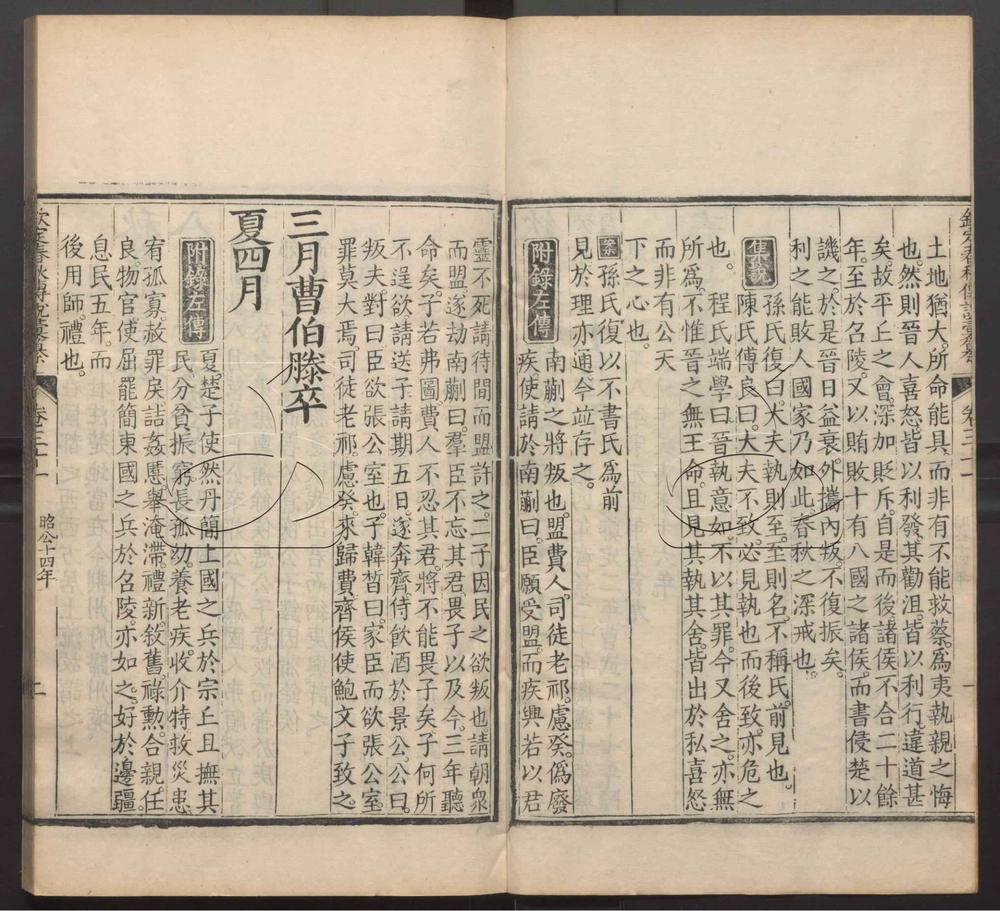 土地猶大。所命能具。而非有不能救蔡。為夷執親之悔
也。然則晉人喜怒。皆以利發。其勸沮。皆以利行。違道甚
矣。故平丘之會。深加貶斥。自是而後。諸侯不合二十餘
年。至於名陵。又以賄敗。十有八國之諸侯。而書侵楚。以
譏之。於是晉日益衰。外攜內叛。不復振矣。
利之能敗人國家乃如此。春秋之深戒也。
集說
孫氏復曰。大夫執則至。至則名。不稱氏。前見也。
陳氏傅良曰。大夫不致。必見執也而後致。亦危之
也。 程氏端學曰。晉執意如。不以其罪。今又舍之。亦無
所為。不惟晉之無王命。且見其執其舍。皆出於私喜怒
而非有公天
下之心也。
案
孫氏復以不書氏為前
見。於理亦通。今並存之。
附錄左傳
南蒯之將叛也。盟費人。司徒老祁。慮癸。偽廢
疾。使請於南蒯曰。臣願受盟。而疾興。若以君
靈不死。請待間而盟。許之。二子因民之欲叛也。請朝眾
而盟。遂劫南蒯曰。羣臣不忘其君。畏子以及今。三年聽
命矣。子若弗圖。費人不忍其君。將不能畏子矣。子何所
不逞欲。請送子。請期五日。遂奔齊。侍飲酒於景公。公曰。
叛夫。對曰。臣欲張公室也。子韓晳曰。家臣而欲張公室。
罪莫大焉。司徒老祁。慮癸。來歸費。齊侯使鮑文子致之。
三月曹伯滕卒
夏四月
附錄左傳
夏。楚子使然丹簡上國之兵於宗丘。且撫其
民。分貧。振窮。長孤幼。養老疾。收介特。救災患。
宥孤寡。赦罪戾。詰姦慝。舉淹滯。禮新。敘舊。祿勳。合親。任
良物官。使屈罷簡東國之兵於名陵。亦如之。好於邊疆。
息民五年。而
後用師。禮也。
卷三十一
昭公十四年
二